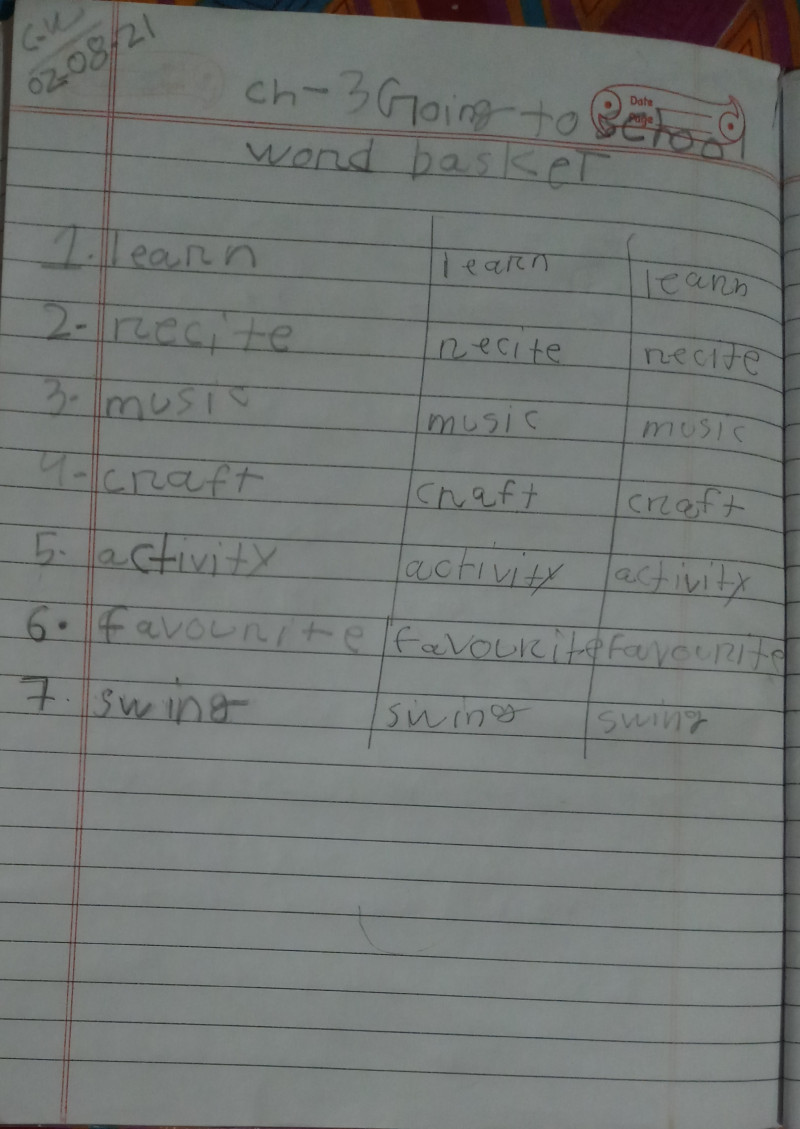 C.W
02.08.21
Date
Page
Ch-3 Going to School
word basket
1. learn learn learn
2- recite recite recite
3. music music music
4- craft craft craft
5. activity activity activity
6. favourite favourite favourite
7. swing swing swing